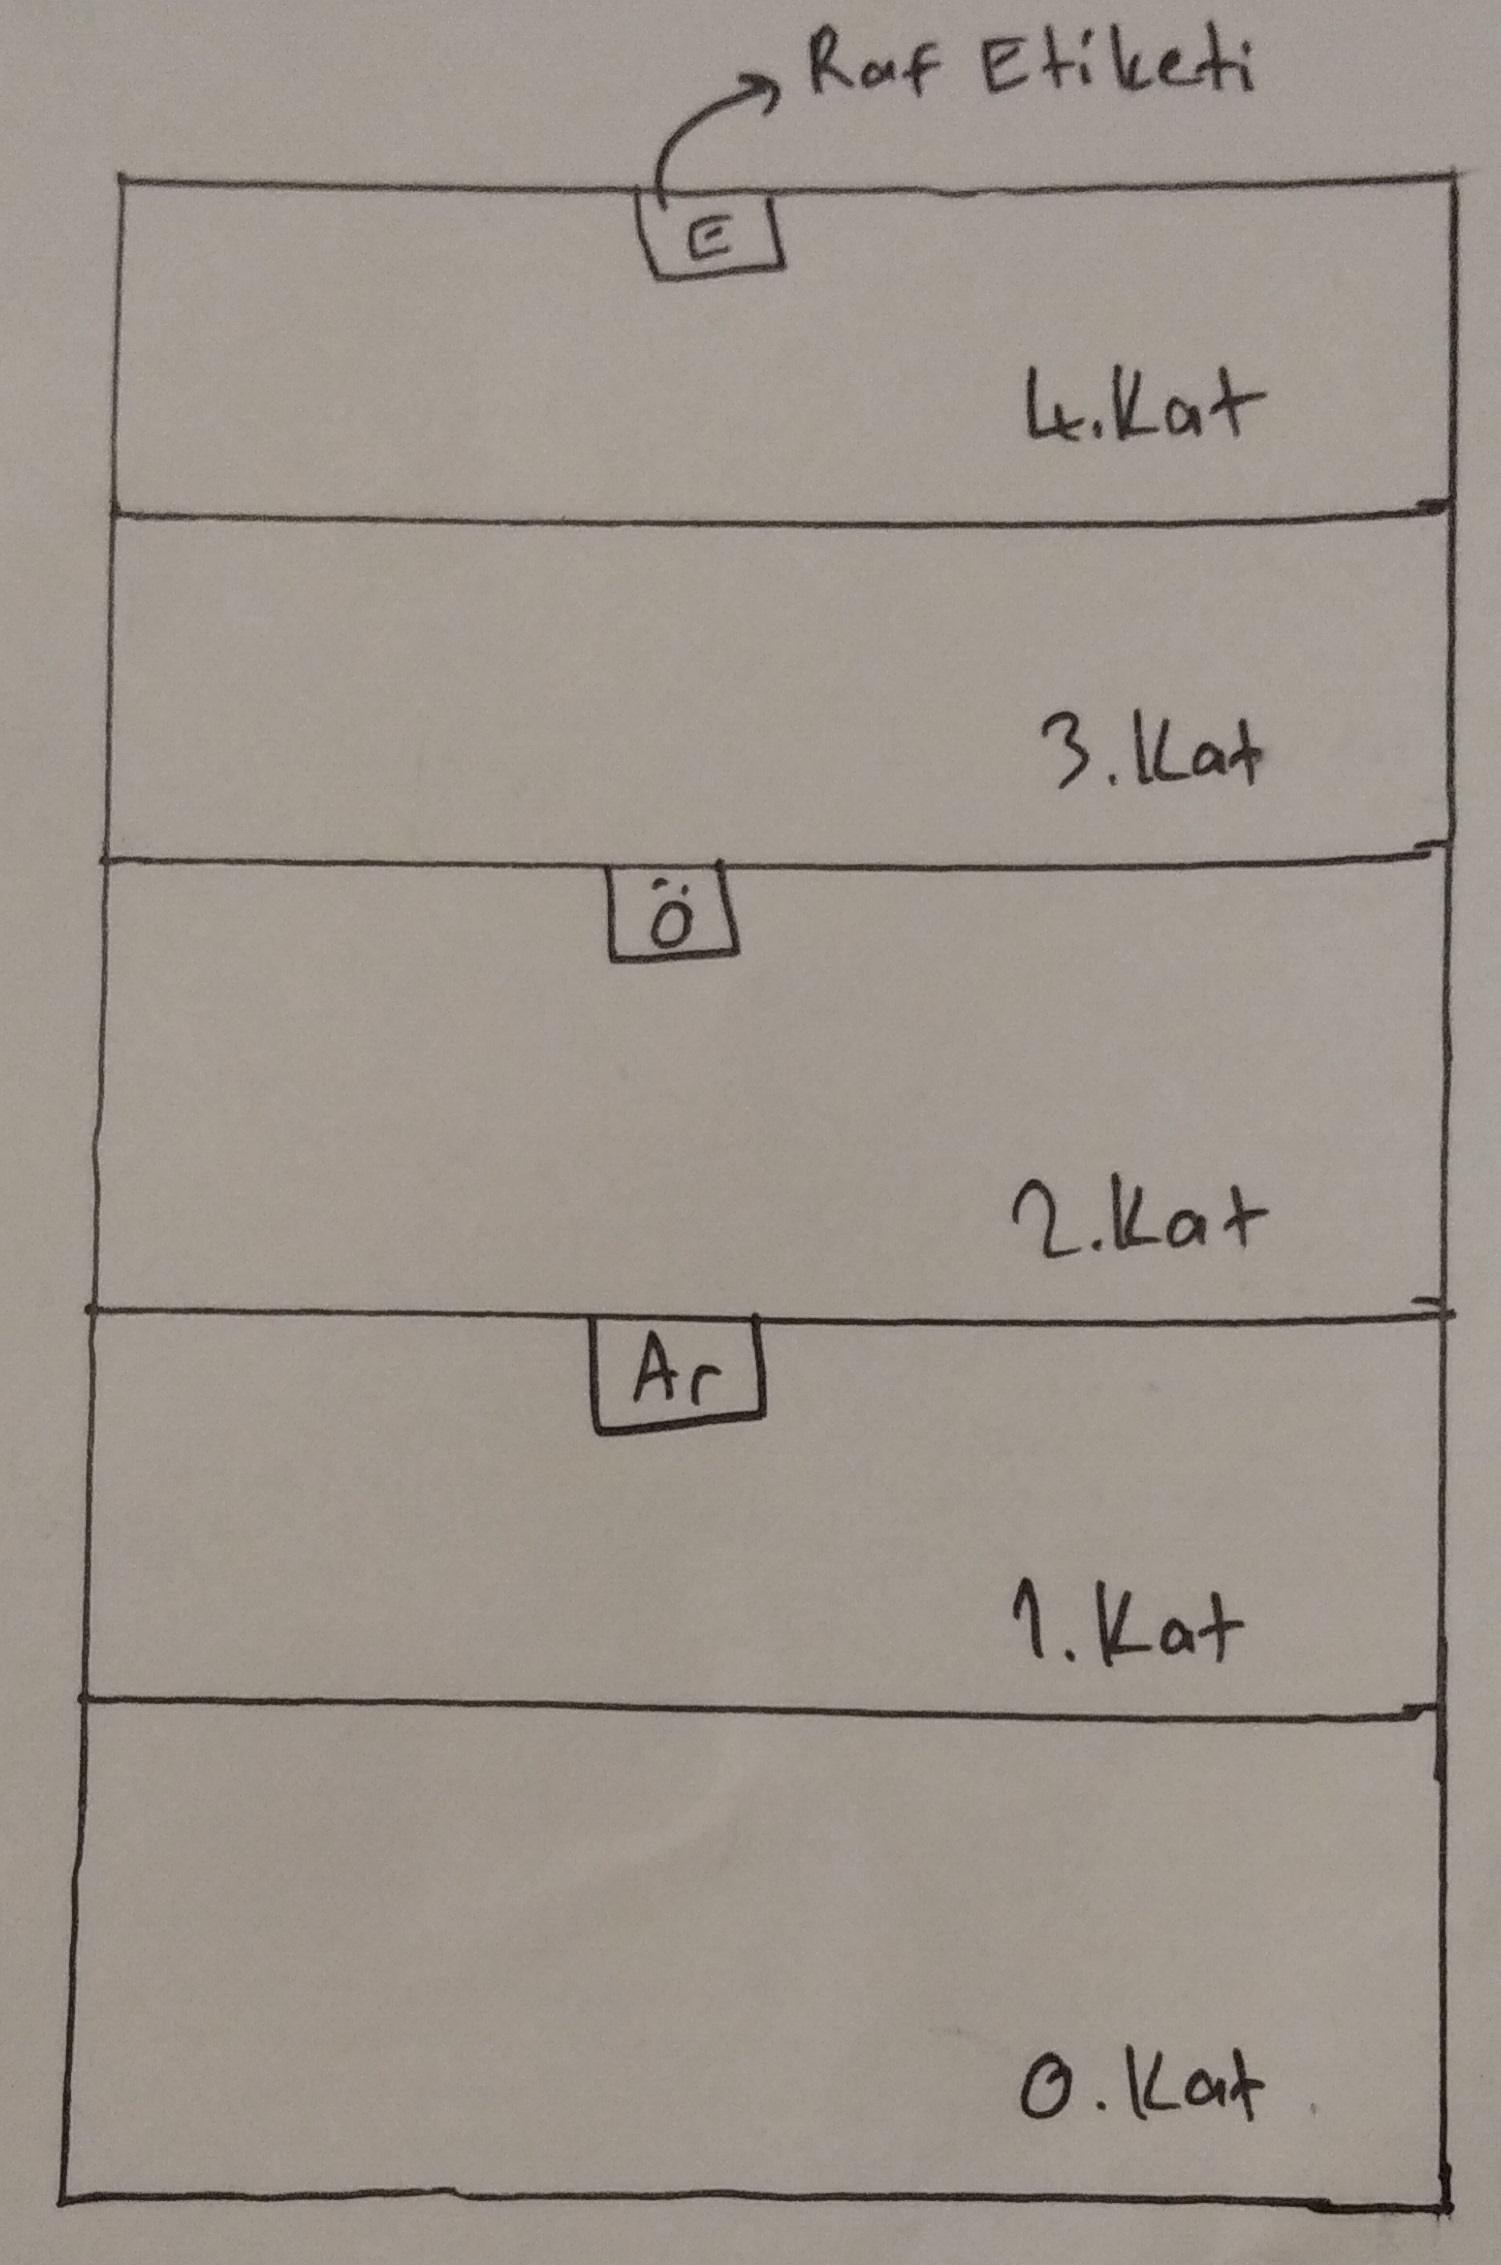 Raf Etiketi
E
4.Kat
3.Kat
Ö
2.Kat
Ar
1.Kat
0.Kat